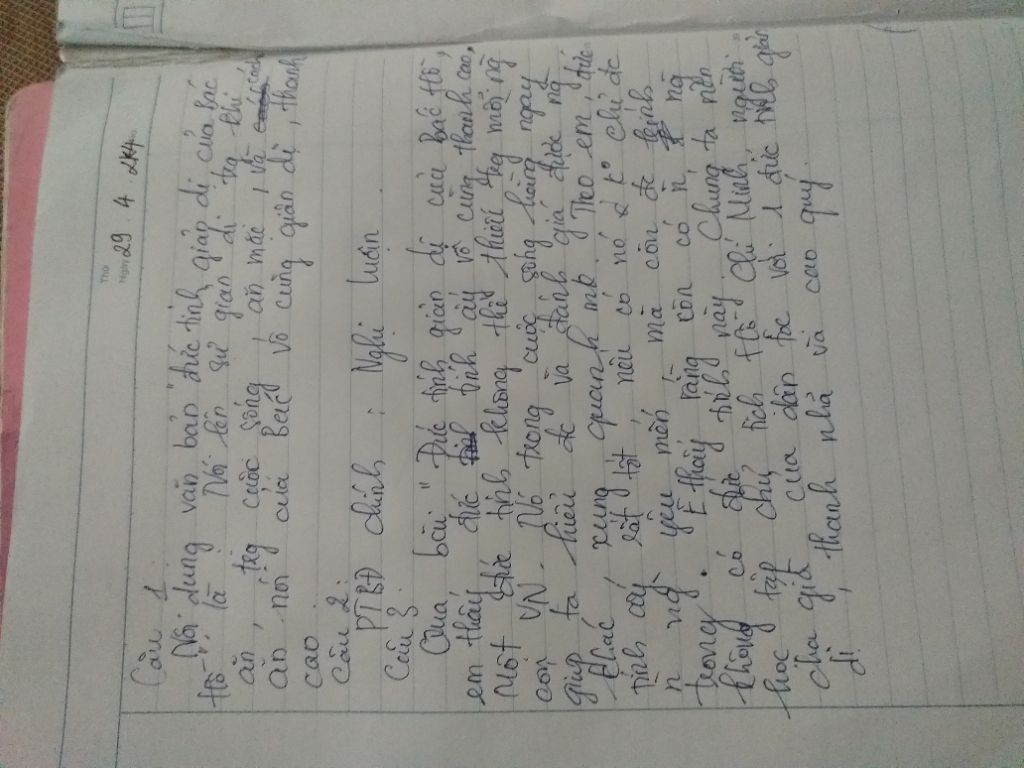 Thứ
Ngày 29. 4. 2k4
Câu 1
- Nội dung văn bản "đức tính giản dị của bác
Hồ" là Nói lên sự giản dị từ khi
ăn, từ cuộc sống, ăn mặc, và cách
ăn nói của Bác vô cùng giản dị, thanh
cao
Câu 2:
PTBĐ chính: Nghị luận
Câu 3
Qua bài "Đức tính giản dị của Bác Hồ,
em thấy đức tính ấy vô cùng thanh cao,
Một đức tính không thể thiếu từ mỗi ng
con VN. Nó trong cuộc sống hàng ngày
giúp ta hiểu đc và đánh giá được ng
khác xung quanh mk. Theo em, đức
tính ấy rất tốt nếu có nó ko chỉ đc
n ng yêu mến mà còn đc
trong. E thấy rằng còn có n ng
không có đức tính này. Chúng ta nên
học tập chủ tịch Hồ Chí Minh người
cha già của dân tộc với 1 đức tính giản
dị, thanh nhã và cao quý.